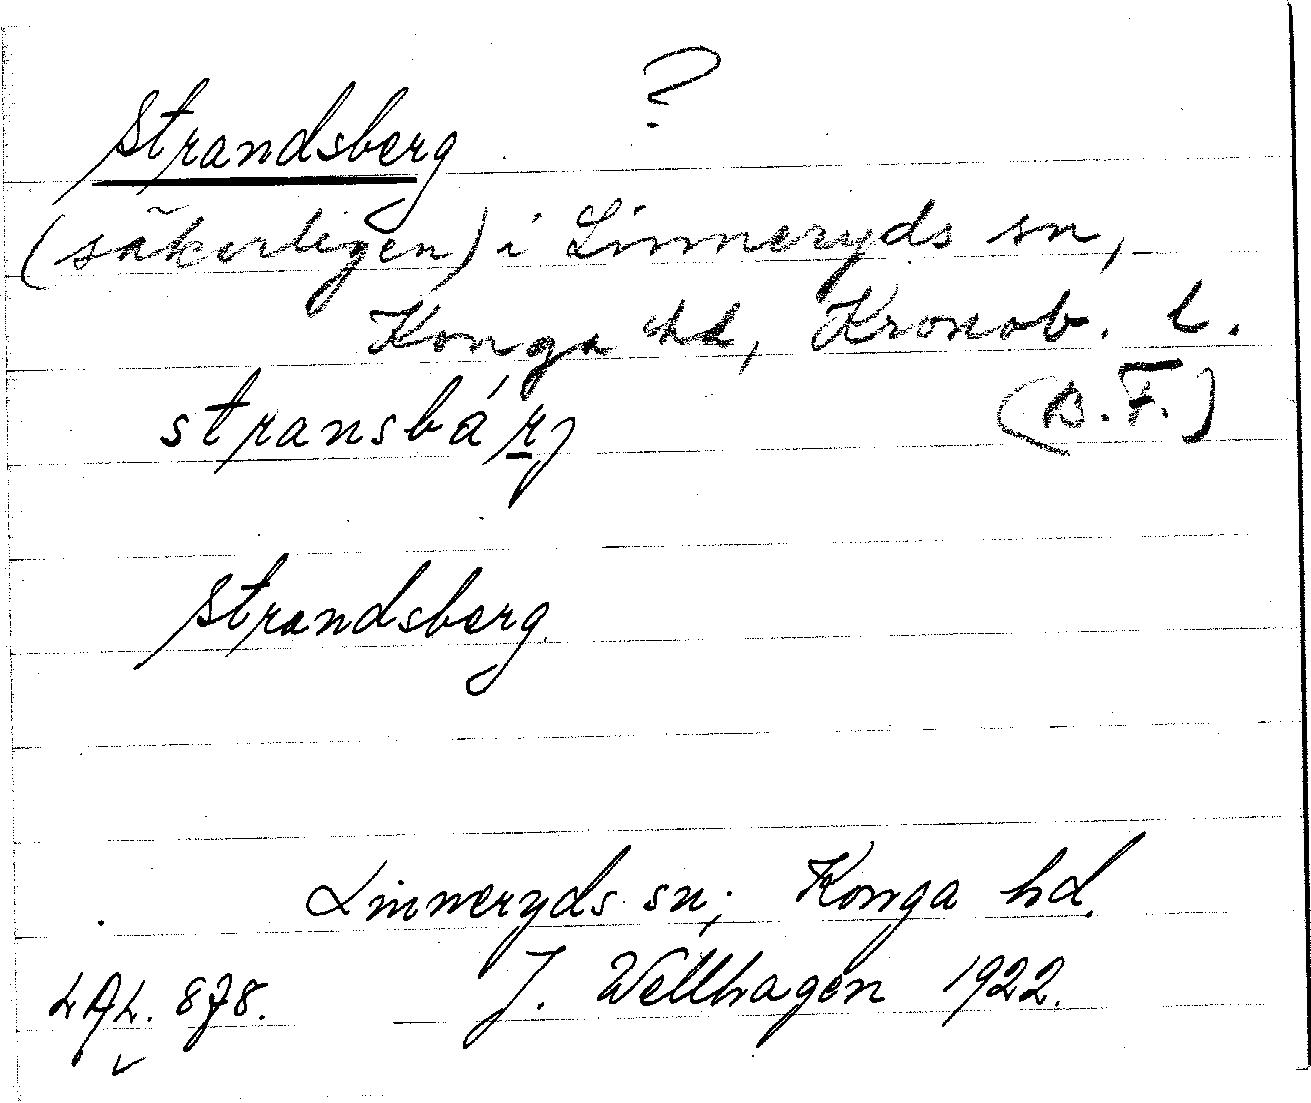 Strandsberg ?
(säkerligen) i Linneryds sn,
Konga hd, Kronob. l.
stransbárj (B.F.)
Strandsberg
Linneryds sn; Konga hd.
LAL. 878. J. Wellhagen 1922.